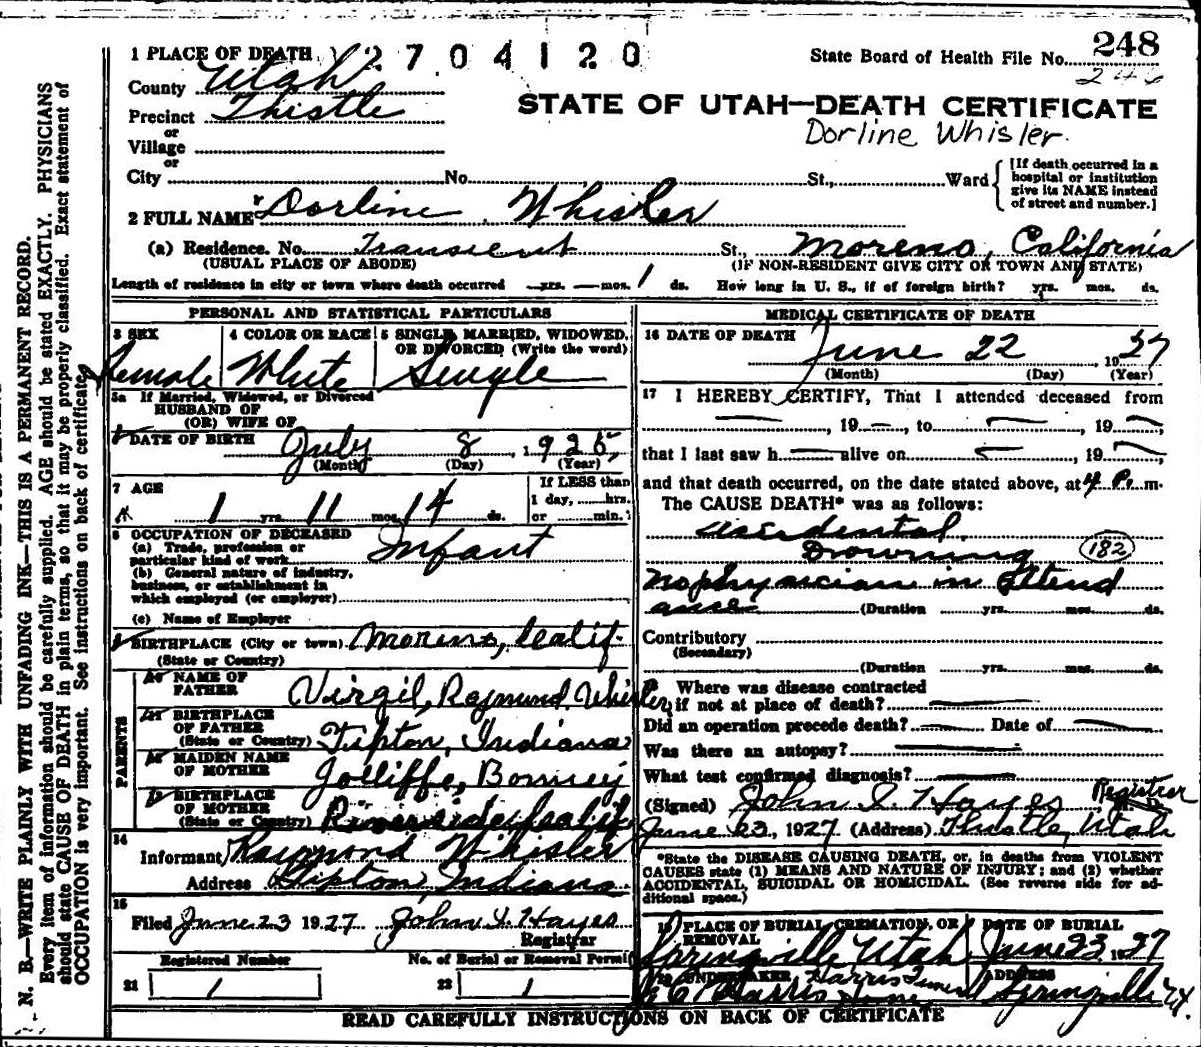 1 PLACE OF DEATH 2704120
State Board of Health File No. 248
246
County Utah
Precinct Thistle
STATE OF UTAH—DEATH CERTIFICATE
Dorline Whisler.
or
Village
or
City No. St., Ward
[If death occurred in a
hospital or institution
give its NAME instead
of street and number.]
2 FULL NAME Dorline Whisler
(a) Residence. No. Transient St., Moreno, California
(USUAL PLACE OF ABODE) (IF NON-RESIDENT GIVE CITY OR TOWN AND STATE)
Length of residence in city or town where death occurred — yrs. — mos. 1 ds. How long in U. S., if of foreign birth? yrs. mos. ds.
PERSONAL AND STATISTICAL PARTICULARS
3 SEX
Female
4 COLOR OR RACE
White
5 SINGLE, MARRIED, WIDOWED,
OR DIVORCED (Write the word)
Single
5a If Married, Widowed, or Divorced
HUSBAND OF
(OR) WIFE OF
DATE OF BIRTH July 8, 1925,
(Month) (Day) (Year)
7 AGE
1 yrs. 11 mos. 14 ds.
If LESS than
1 day, hrs.
or min.
8 OCCUPATION OF DECEASED
(a) Trade, profession or
particular kind of work Infant
(b) General nature of industry,
business, or establishment in
which employed (or employer)
(c) Name of Employer
9 BIRTHPLACE (City or town) Moreno, Calif.
(State or Country)
PARENTS
10 NAME OF
FATHER Virgil, Raymund Whisler
11 BIRTHPLACE
OF FATHER
(State or Country) Tipton, Indiana
12 MAIDEN NAME
OF MOTHER Jolliffe, Bonney
13 BIRTHPLACE
OF MOTHER
(State or Country) Riverside, Calif.
14
Informant Raymond Whisler
Address Tipton, Indiana
15
Filed June 23 1927 John I. Hayes
Registrar
Registered Number
21 1
No. of Burial or Removal Permit
22 1
MEDICAL CERTIFICATE OF DEATH
16 DATE OF DEATH June 22 1927
(Month) (Day) (Year)
17 I HEREBY CERTIFY, That I attended deceased from
— 19 —, to — 19 —,
that I last saw h — alive on —, 19 —,
and that death occurred, on the date stated above, at 4 P. m.
The CAUSE DEATH* was as follows:
Accidental
Drowning 182
No physician in attend
ance
(Duration yrs. mos. ds.
Contributory
(Secondary)
(Duration yrs. mos. ds.
Where was disease contracted
if not at place of death? —
Did an operation precede death? — Date of —
Was there an autopsy? —
What test confirmed diagnosis? —
(Signed) John I. Hayes Registrar M. D.
June 23, 1927 (Address) Thistle, Utah
*State the DISEASE CAUSING DEATH, or, in deaths from VIOLENT
CAUSES state (1) MEANS AND NATURE OF INJURY; and (2) whether
ACCIDENTAL, SUICIDAL OR HOMICIDAL. (See reverse side for ad-
ditional space.)
19 PLACE OF BURIAL, CREMATION, OR
REMOVAL
Springville Utah
DATE OF BURIAL
June 23, 1927
20 UNDERTAKER Harris Funeral
Harris Home
ADDRESS
Springville Ut.
READ CAREFULLY INSTRUCTIONS ON BACK OF CERTIFICATE
N. B.—WRITE PLAINLY WITH UNFADING INK—THIS IS A PERMANENT RECORD.
Every item of information should be carefully supplied. AGE should be stated EXACTLY. PHYSICIANS
should state CAUSE OF DEATH in plain terms, so that it may be properly classified. Exact statement of
OCCUPATION is very important. See instructions on back of certificate.